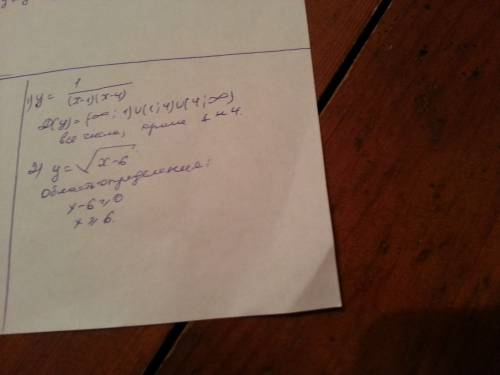 1) y = 1/((x-1)(x-4))
D(y) = (∞; 1)∪(1; 4)∪(4; ∞)
все числа, кроме 1 и 4.
2) y = √(x-6)
Область определения:
x-6 ≥ 0
x ≥ 6.